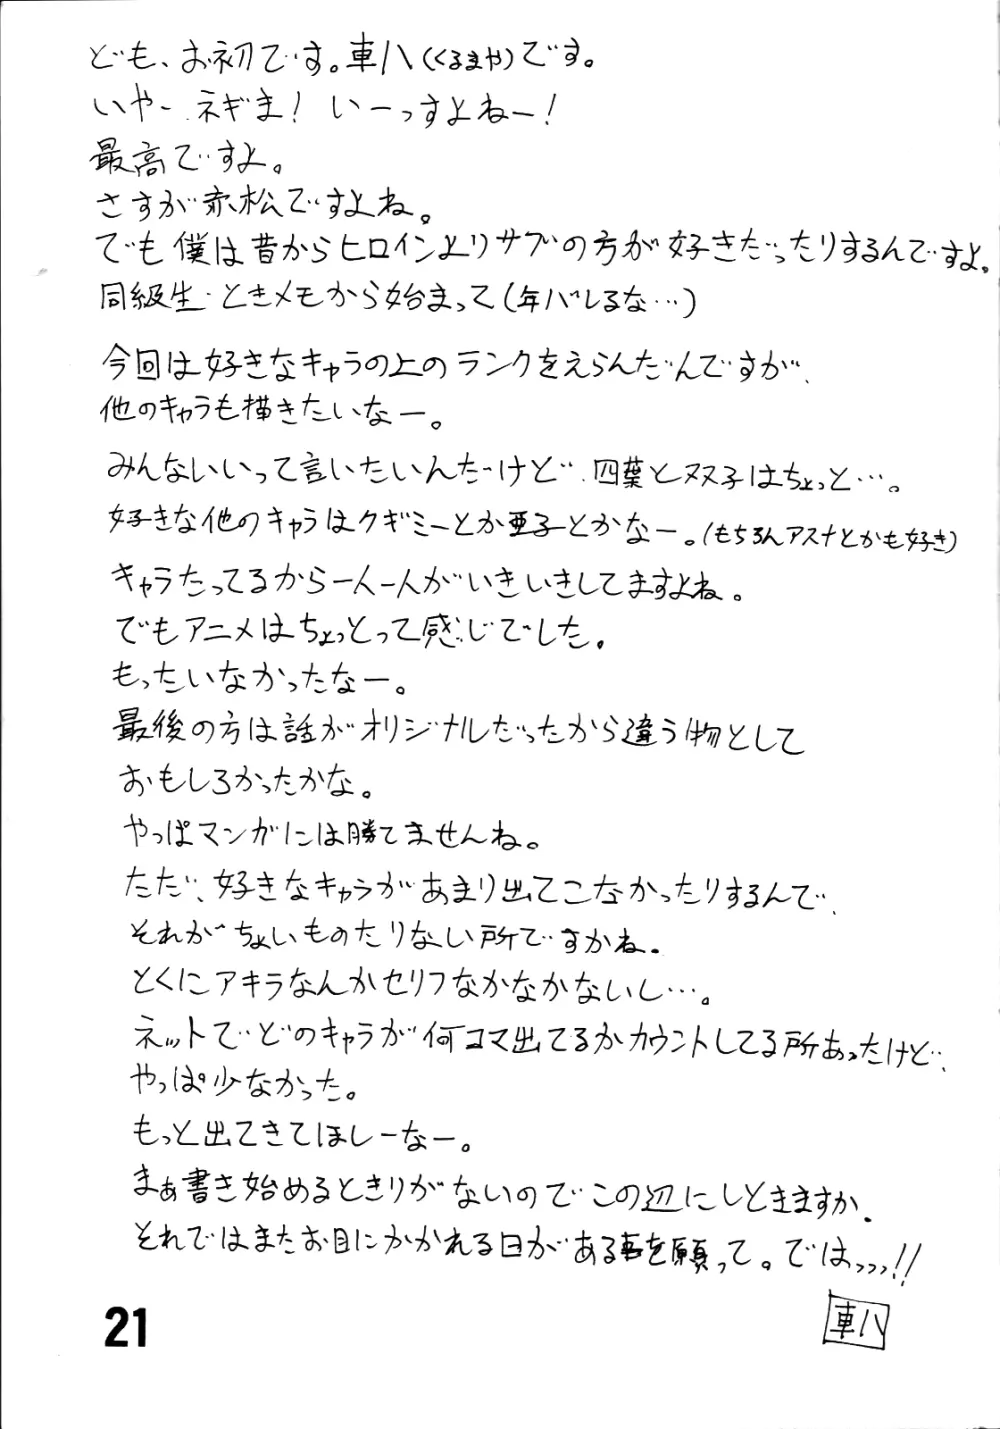 ども、お初です。車八(くるまや)です。
いやー、ネギま! いーっすよねー!
最高ですよ。
さすが赤松ですよね。
でも僕は昔からヒロインよりサブの方が好きだったりするんですよ。
同級生・ときメモから始まって(年バレるな…)
今回は好きなキャラの上のランクをえらんだんですが、
他のキャラも描きたいなー。
みんないいって言いたいんだけど、四葉と双子はちょっと…。
好きな他のキャラはクギミーとか亜子とかなー。(もちろんアスナとかも好き)
キャラたってるから一人一人がいきいきしてますよね。
でもアニメはちょっとって感じでした。
もったいなかったなー。
最後の方は話がオリジナルだったから違う物として
おもしろかったかな。
やっぱマンガには勝てませんね。
ただ、好きなキャラがあまり出てこなかったりするんで、
それがちょいものたりない所ですかね。
とくにアキラなんかセリフなかなかないし…。
ネットでどのキャラが何コマ出てるかカウントしてる所あったけど、
やっぱ少なかった。
もっと出てきてほしーなー。
まぁ書き始めるときりがないのでこの辺にしときますか。
それではまたお目にかかれる日がある事を願って。ではっっっ!!
車八
21